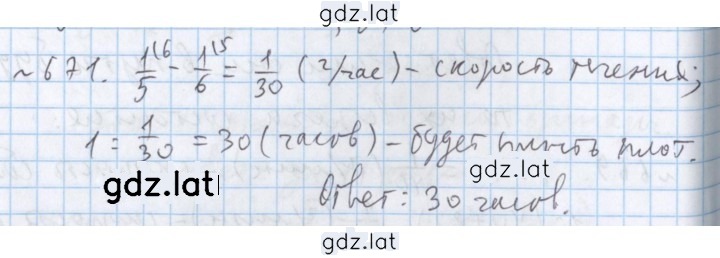 gdz.lat
~ 671. 1/5 (6 - 1/6 (5 = 1/30 (ч/час) - скорость течения;
1 : 1/30 = 30 (часов) - будет плыть плот.
gdz.lat
gdz.lat
Ответ: 30 часов.
gdz.lat